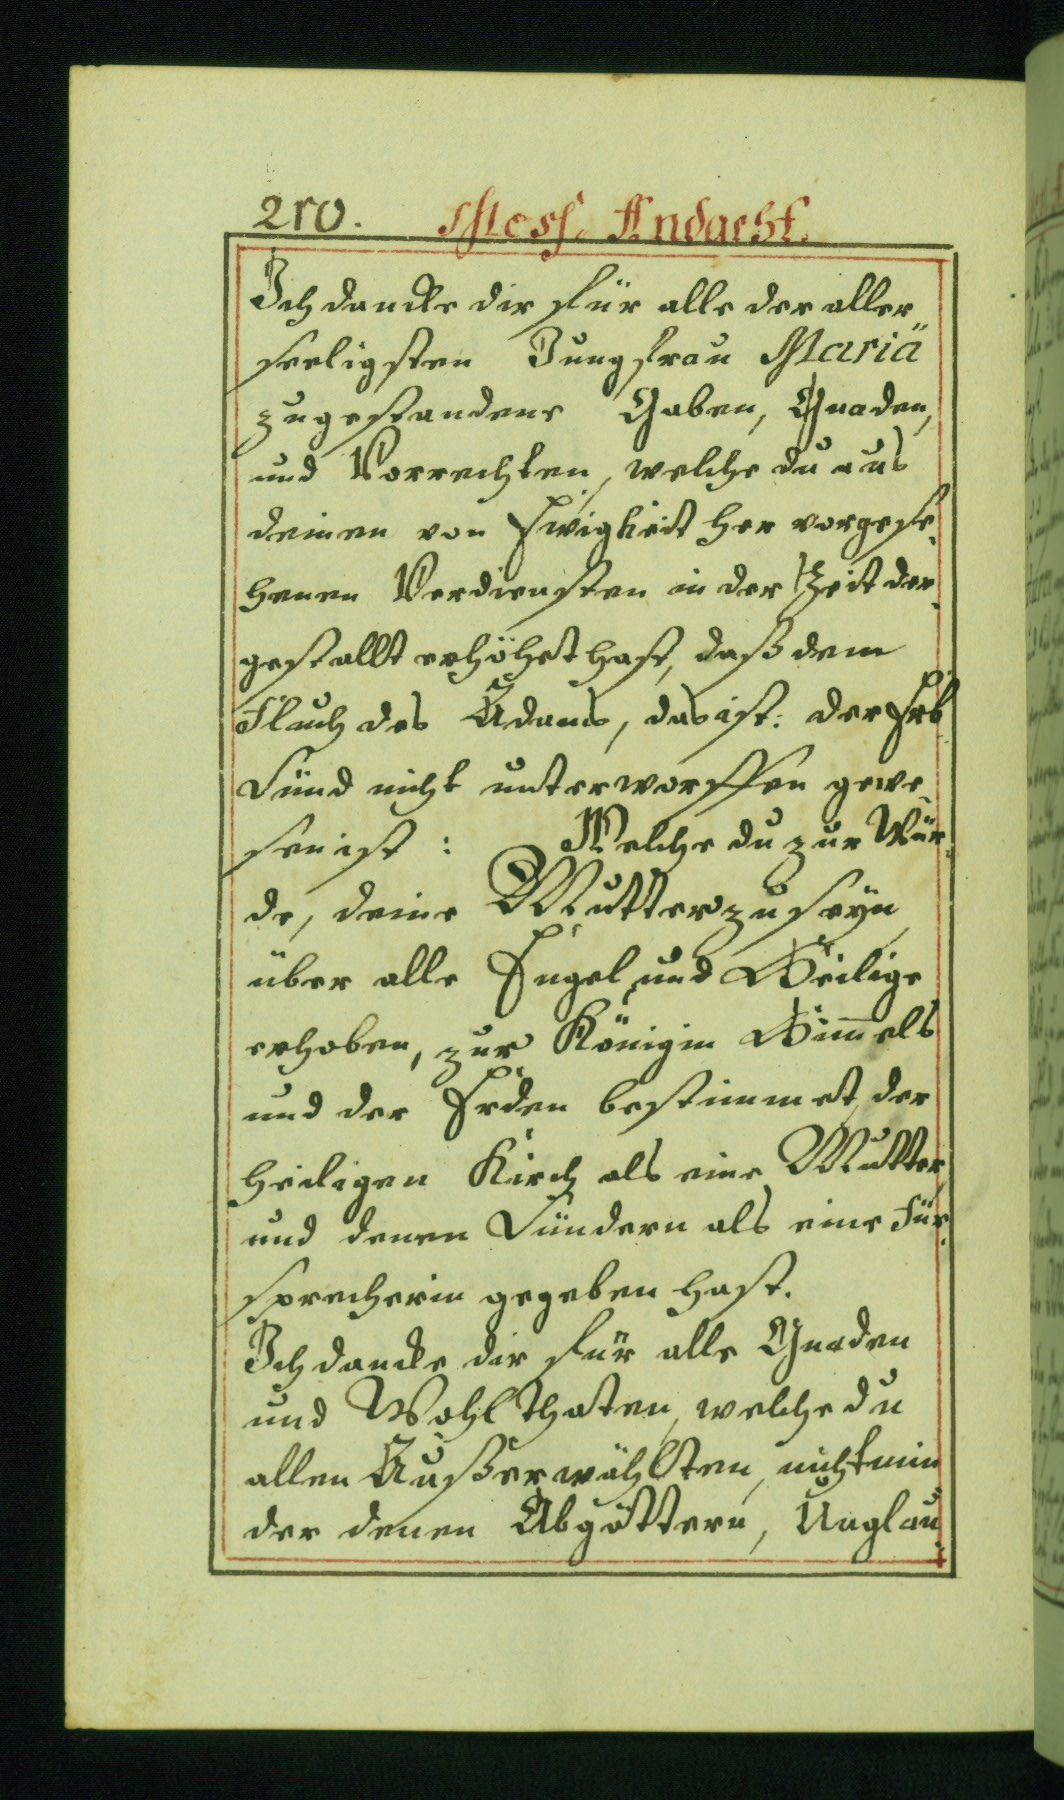 210. Mess. Andacht.
Ich dancke dir für alle der aller
seeligsten Jungfrau Mariä
zugestandene Gaben, Gnaden,
und Vorrechten, welche du aus
deinen von Ewigkeit her vorgese„
henen Verdiensten in der Zeit der„
gestallt erhöhet hast, daß dem
Fluch des Adams, das ist: der Erb
Sünd nicht unterworffen gewe„
sen ist : Welche du zur Wür„
de, deine Mutter zu seÿn
über alle Engel und Heilige
erhoben, zur Königin Him̅els
und der Erden bestimmet, der
heiligen Kirch als eine Mutter,
und denen Sündern als eine Für„
sprecherin gegeben hast.
Ich dancke dir für alle Gnaden
und Wohlthaten, welche du
allen Außerwählten, nicht min
der denen Abgöttern, Unglau„